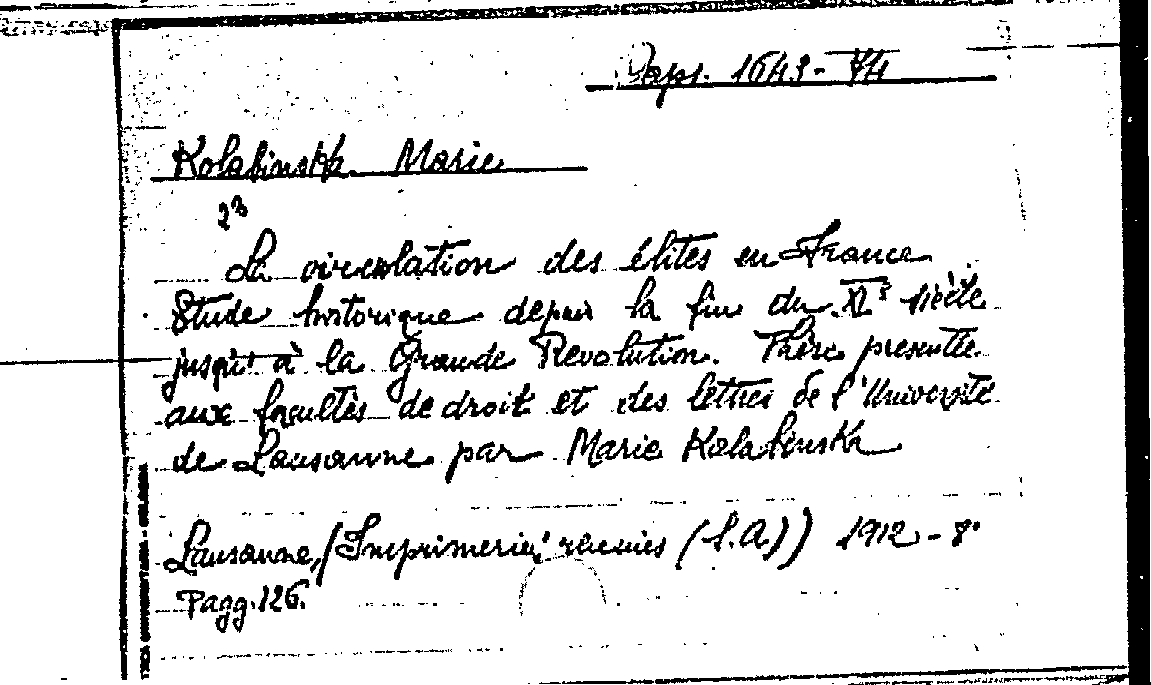 Caps. 1643-V4
Kolabinska Marie
23
La circulation des élites en France
Étude historique depuis la fin du XIe siècle
jusqu'à la Grande Revolution. Thèse presentée
aux facultés de droit et des lettres de l'Université
de Lausanne par Marie Kolabinska
Lausanne, (Imprimeries réunies (S.A.)) 1912 - 8°
Pagg. 126.